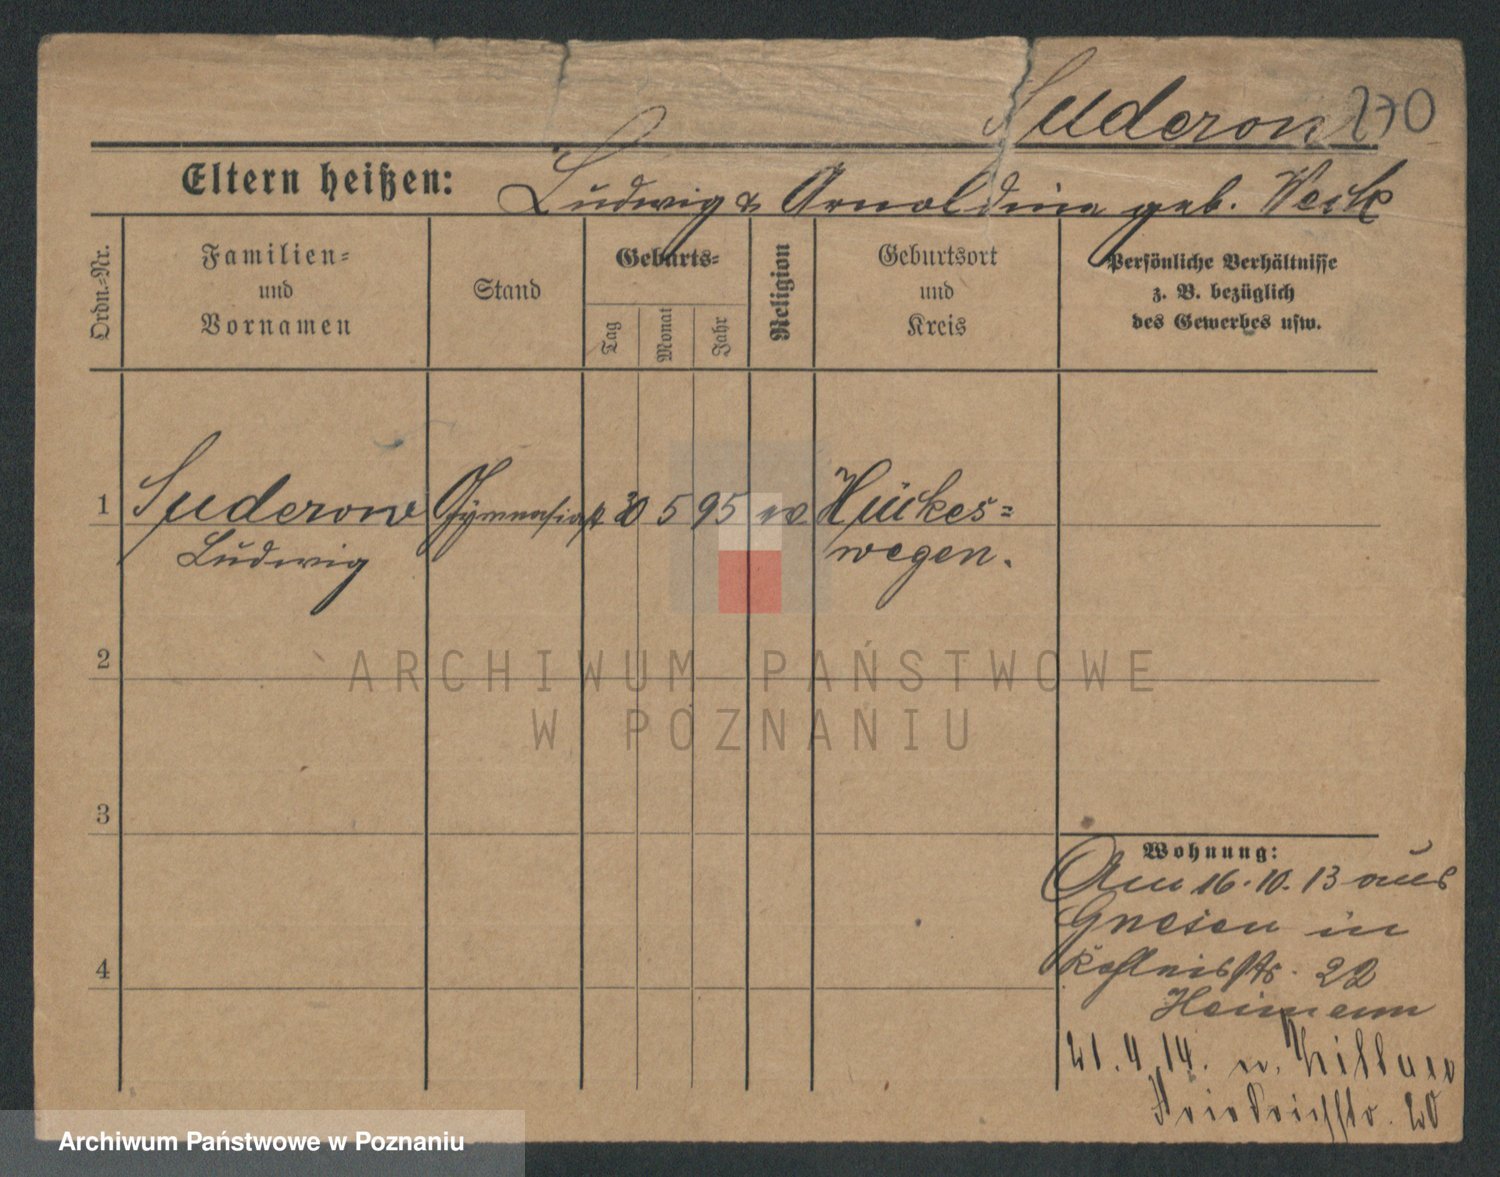 Suderow 270
Eltern heißen: Ludwig & Arnoldine geb. Weck
Ordn.-Nr.
Familien-
und
Vornamen
Stand
Geburts-
Tag
Monat
Jahr
Religion
Geburtsort
und
Kreis
Persönliche Verhältnisse
z. B. bezüglich
des Gewerbes usw.
1 Suderow Gymnasiast 30 5 95 Hückes=
Ludwig wegen.
2
ARCHIWUM PAŃSTWOWE
W POZNANIU
3
Wohnung:
Am 16.10.13 aus
Gnesen in
22
4
Heimann
21.4.14. n.
Friedrichstr. 20
Archiwum Państwowe w Poznaniu